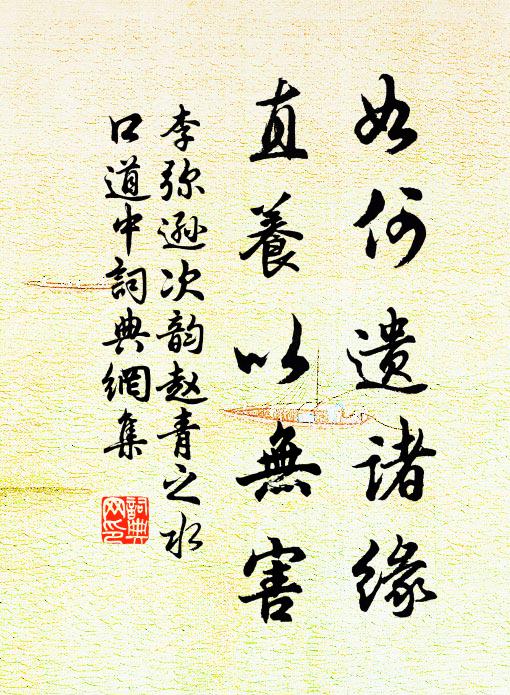 如何遗諸緣
直養以無害
李弥遜次韵赵青之水
口道中詞典網集
詞典
网印